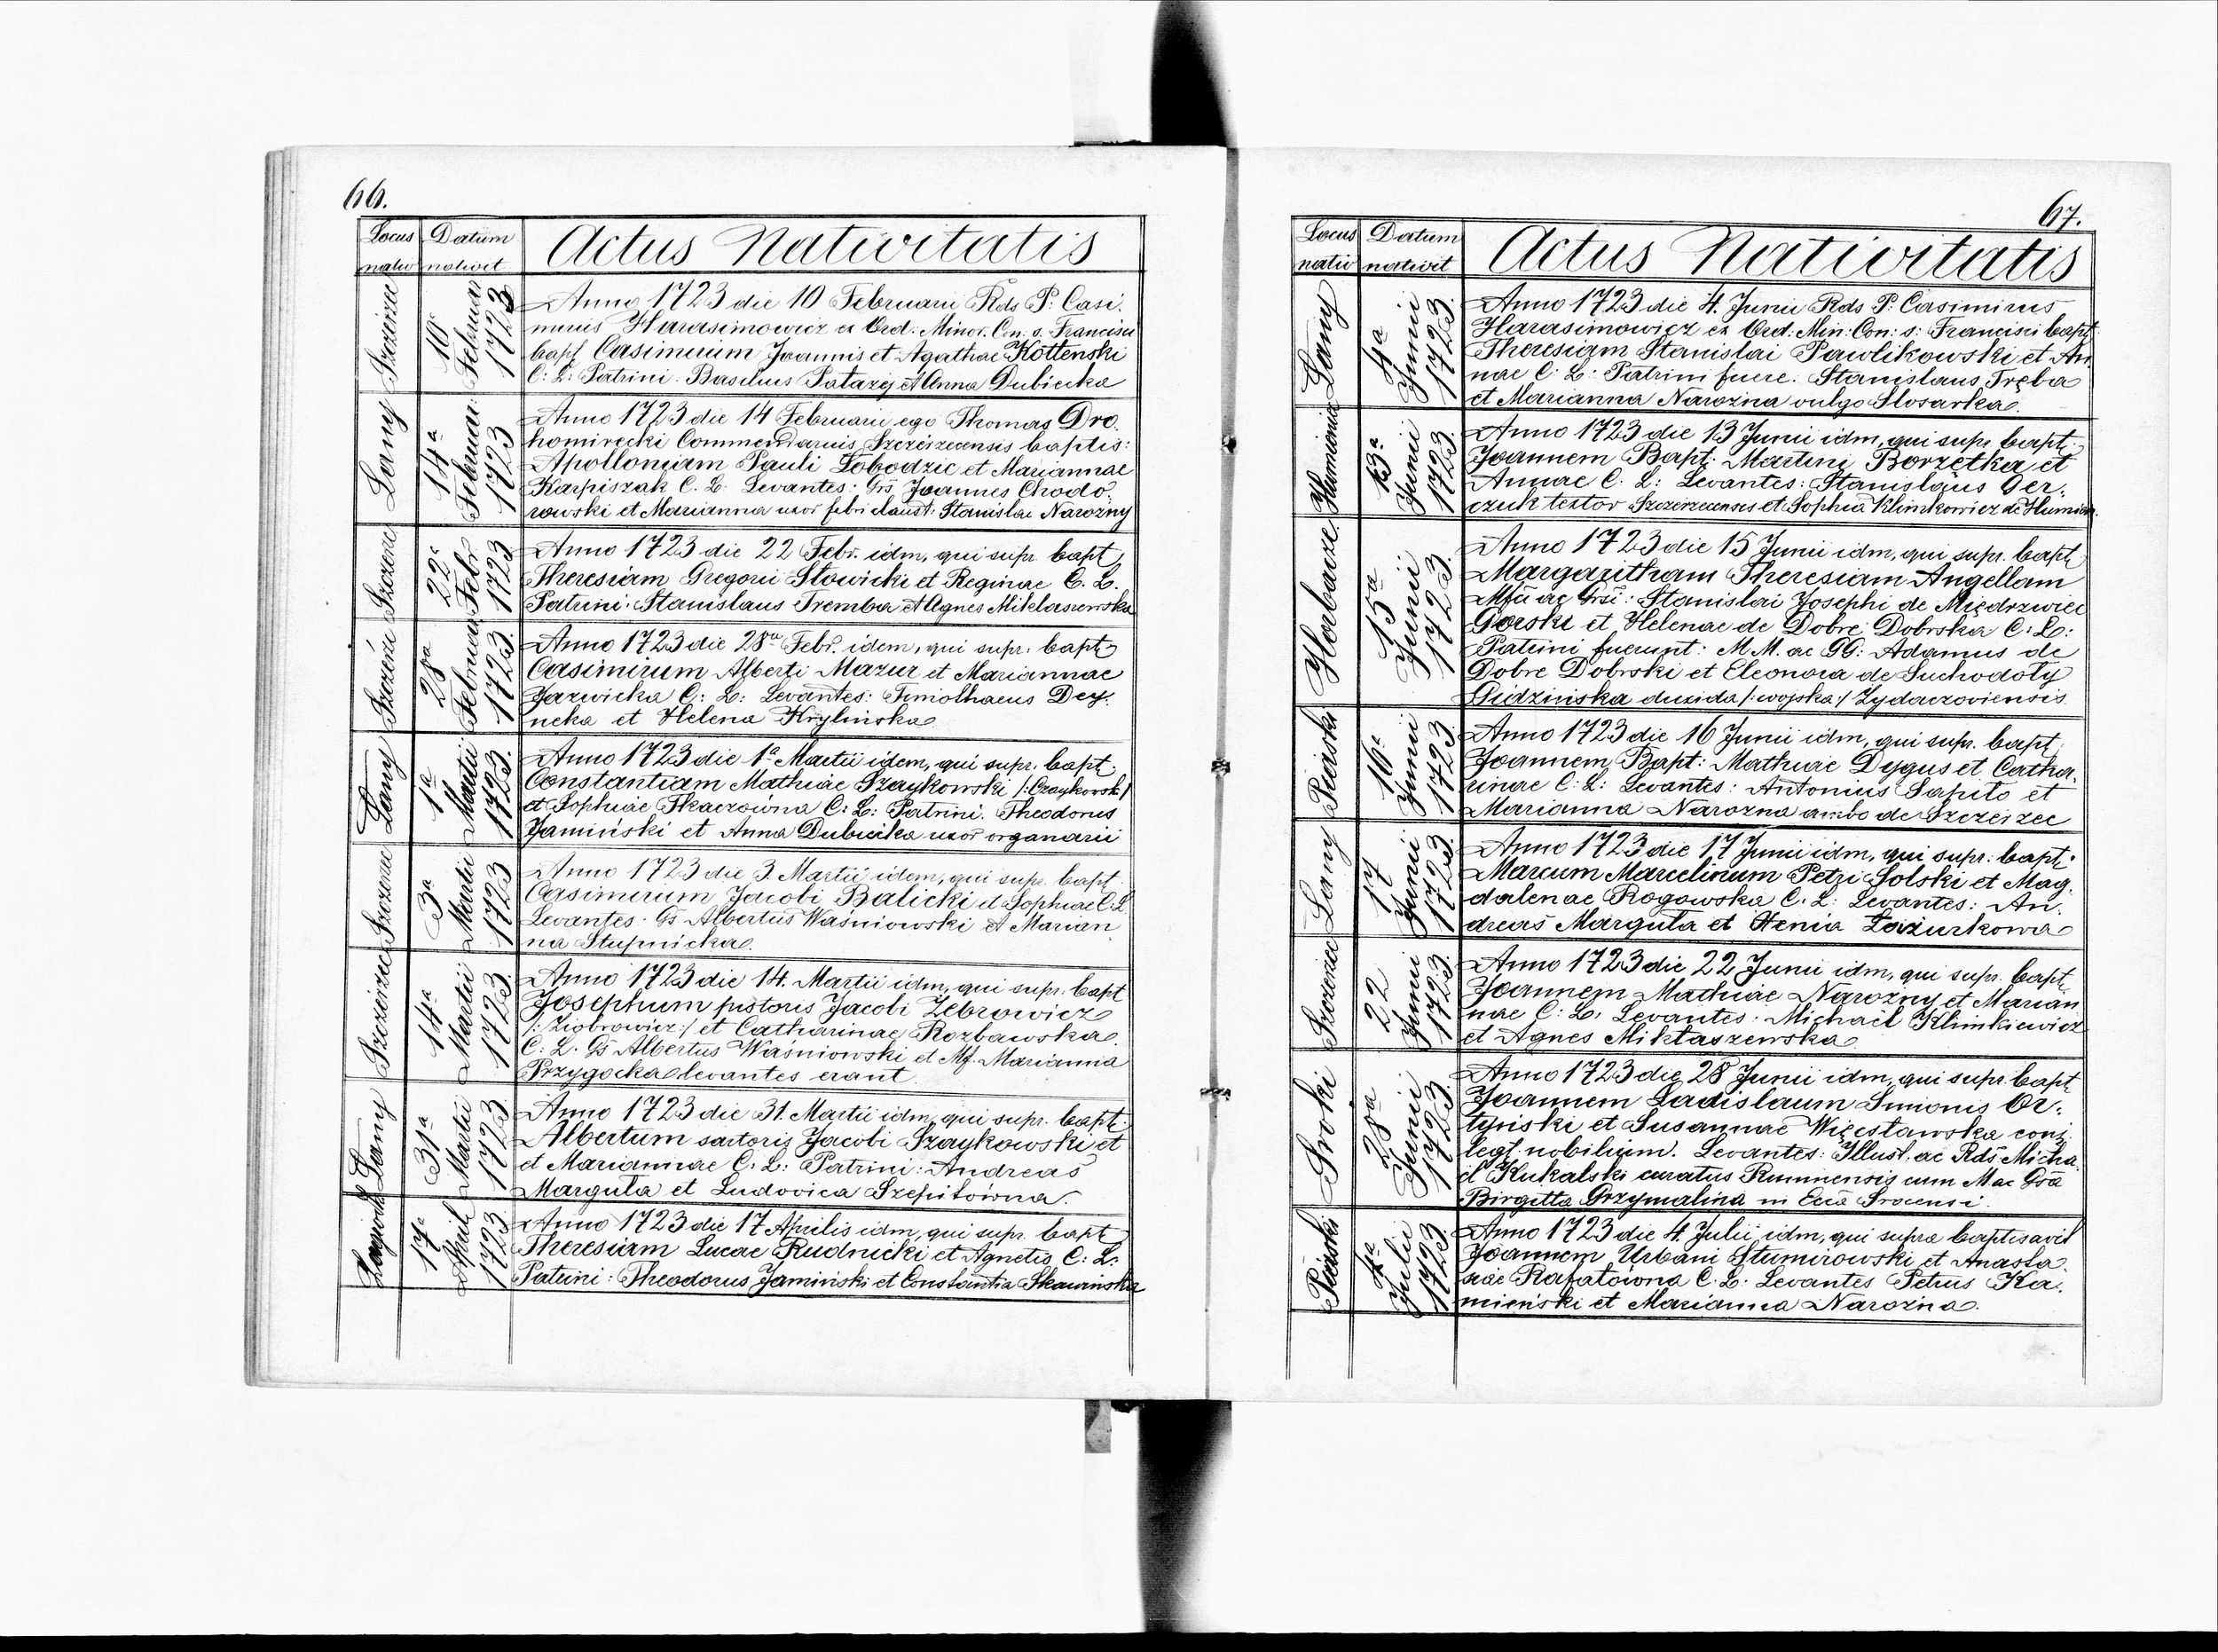 66.
Locus nativ
Datum nativit
Actus Nativitatis
Szczerzec
10a Februarii 1723
Anno 1723 die 10 Februarii Rds P: Casi
mirus Harasimowicz ex Ord. Minor. Con. s. Francisci
bapt Casimirum Joannis et Agathae Kottenski
C: L: Patrini. Basilius Patazy et Anna Dubiecka
Lany
14a Februar: 1723
Anno 1723 die 14 Februarii ego Thomas Dro
homirecki Commendarius Szczerzecensis baptis:
Apolloniam Pauli Łobodzic et Mariannae
Karpiszak C. L: Levantes: Grs Joannes Chodo:
rowski et Marianna uxor fabri claust: Stanislai Narozny
22a Febr 1723
Anno 1723 die 22 Febr. idm, qui supr. bapt
Theresiam Gregorii Słowicki et Reginae C. L.
Patrini: Stanislaus Tremba et Agnes Miklaszewska
28a Februarii 1723.
Anno 1723 die 28va Febr. idem, qui supr. bapt
Casimirum Alberti Mazur et Mariannae
Jazwicka C: L: Levantes: Timothaeus Dey:
neka et Helena Krylinska
Lany
1a Martii 1723.
Anno 1723 die 1a Martii idem, qui supr. bapt.
Constantiam Mathiae Szaykowski /: Czaykowski /
et Sophiae Tkaczowna C: L: Patrini. Theodorus
Jamiński et Anna Dubiecka uxor organarii
3a Martii 1723
Anno 1723 die 3. Martii idem, qui supr. bapt
Casimirum Jacobi Balicki et Sophiae C: L
Levantes. Gs Albertus Waśniowski et Marian
na Stupnicka.
Szczerzec
14a Martii 1723.
Anno 1723 die 14. Martii idm, qui supr. bapt
Josephum pistoris Jacobi Zebrowicz
/: Ziobrowicz :/ et Catharinae Rozbawska
C: L. Gs Albertus Waśniowski et Mf. Marianna
Przygocka levantes erant
Lany
31a Martii 1723
Anno 1723 die 31. Martii idm, qui supr. bapt:
Albertum sartoris Jacobi Szaykowski et
et Mariannae C: L: Patrini: Andreas
Margula et Ludovica Szepitowna.
17a April 1723
Anno 1723 die 17 Aprilis idm, qui supr. bapt
Theresiam Lucae Rudnicki et Agnetis C: L:
Patrini: Theodorus Jamiński et Constantia Skawinska
67.
Locus nativ
Datum nativit
Actus Nativitatis
Lany
4a Junii 1723.
Anno 1723 die 4. Junii Rds P: Casimirus
Harasimowicz ex Ord: Min: Con: s: Francisci bapt
Theresiam Stanislai Pawlikowski et An
nae C: L: Patrini fuere. Stanislaus Tręba
et Marianna Narozna vulgo Slosarka.
Humienia
13a Junii 1723.
Anno 1723 die 13 Junii idm, qui supr. bapt:
Joannem Bapt: Martini Borzętka et
Annae C. L: Levantes: Stanislaus Ger:
czuk textor Szczerzecensis et Sophia Klimkowicz de Humien.
Horbacze
15a Junii 1723.
Anno 1723 die 15 Junii idm, qui supr. bapt
Margaritham Theresiam Angellam
Mfci ac Grsi: Stanislai Josephi de Międzrwiec
Gorski et Helenae de Dobre Dobrska C: L:
Patrini fuerunt: M. M. ac GG: Adamus de
Dobre Dobrski et Eleonora de Suchodoły
Gidzińska ducida /: wojska :/ Zydaczoviensis
Piaski
16a Junii 1723.
Anno 1723 die 16 Junii idm, qui supr. bapt
Joannem Bapt: Mathiae Dygus et Catha.
rinae C: L: Levantes: Antonius Sapito et
Marianna Narozna ambo de Szczerzec
Lany
17 Junii 1723.
Anno 1723 die 17 Junii idm, qui supr: bapt:
Marcum Marcelinum Petri Solski et Mag.
dalenae Rogowska C. L: Levantes: An.
dreas Margula et Henia Łazurkowa
Szczerzec
22 Junii 1723.
Anno 1723 die 22 Junii idm, qui supr. bapt
Joannem Mathiae Narozny et Marian
nae C: L: Levantes: Michaël Klimkiewicz
et Agnes Mikłaszewska
Sroki
28a Junii 1723.
Anno 1723 die 28 Junii idm, qui supr. bapt
Joannem Ladislaum Simonis Or:
tyński et Susannae Więcsławska conj.
legt. nobilium. Levantes: Illust. ac Rds Micha
el Kukalski curatus Rumnensis cum Mac Gsa
Birgitta Grzymalina in Ecca Srocensi.
Piaski
4a Julii 1723
Anno 1723 die 4. Julii idm, qui supra baptisavit
Joannem Urbani Stumirowski et Anasta
siae Rafatowna C. L. Levantes Petrus Ka.
mieński et Marianna Narozna.